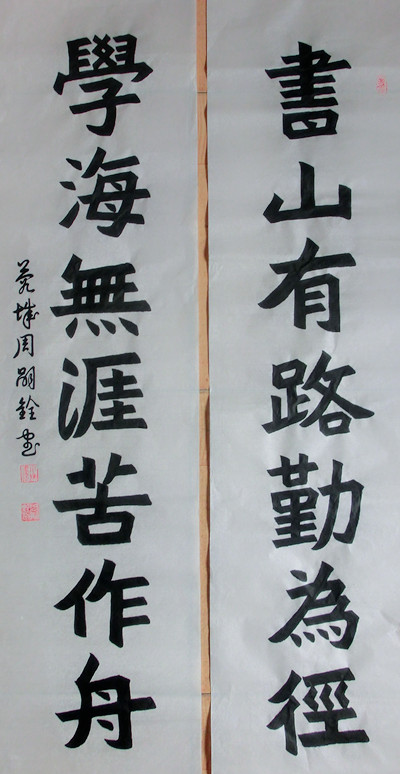 書山有路勤為徑
學海無涯苦作舟
周嗣銓書